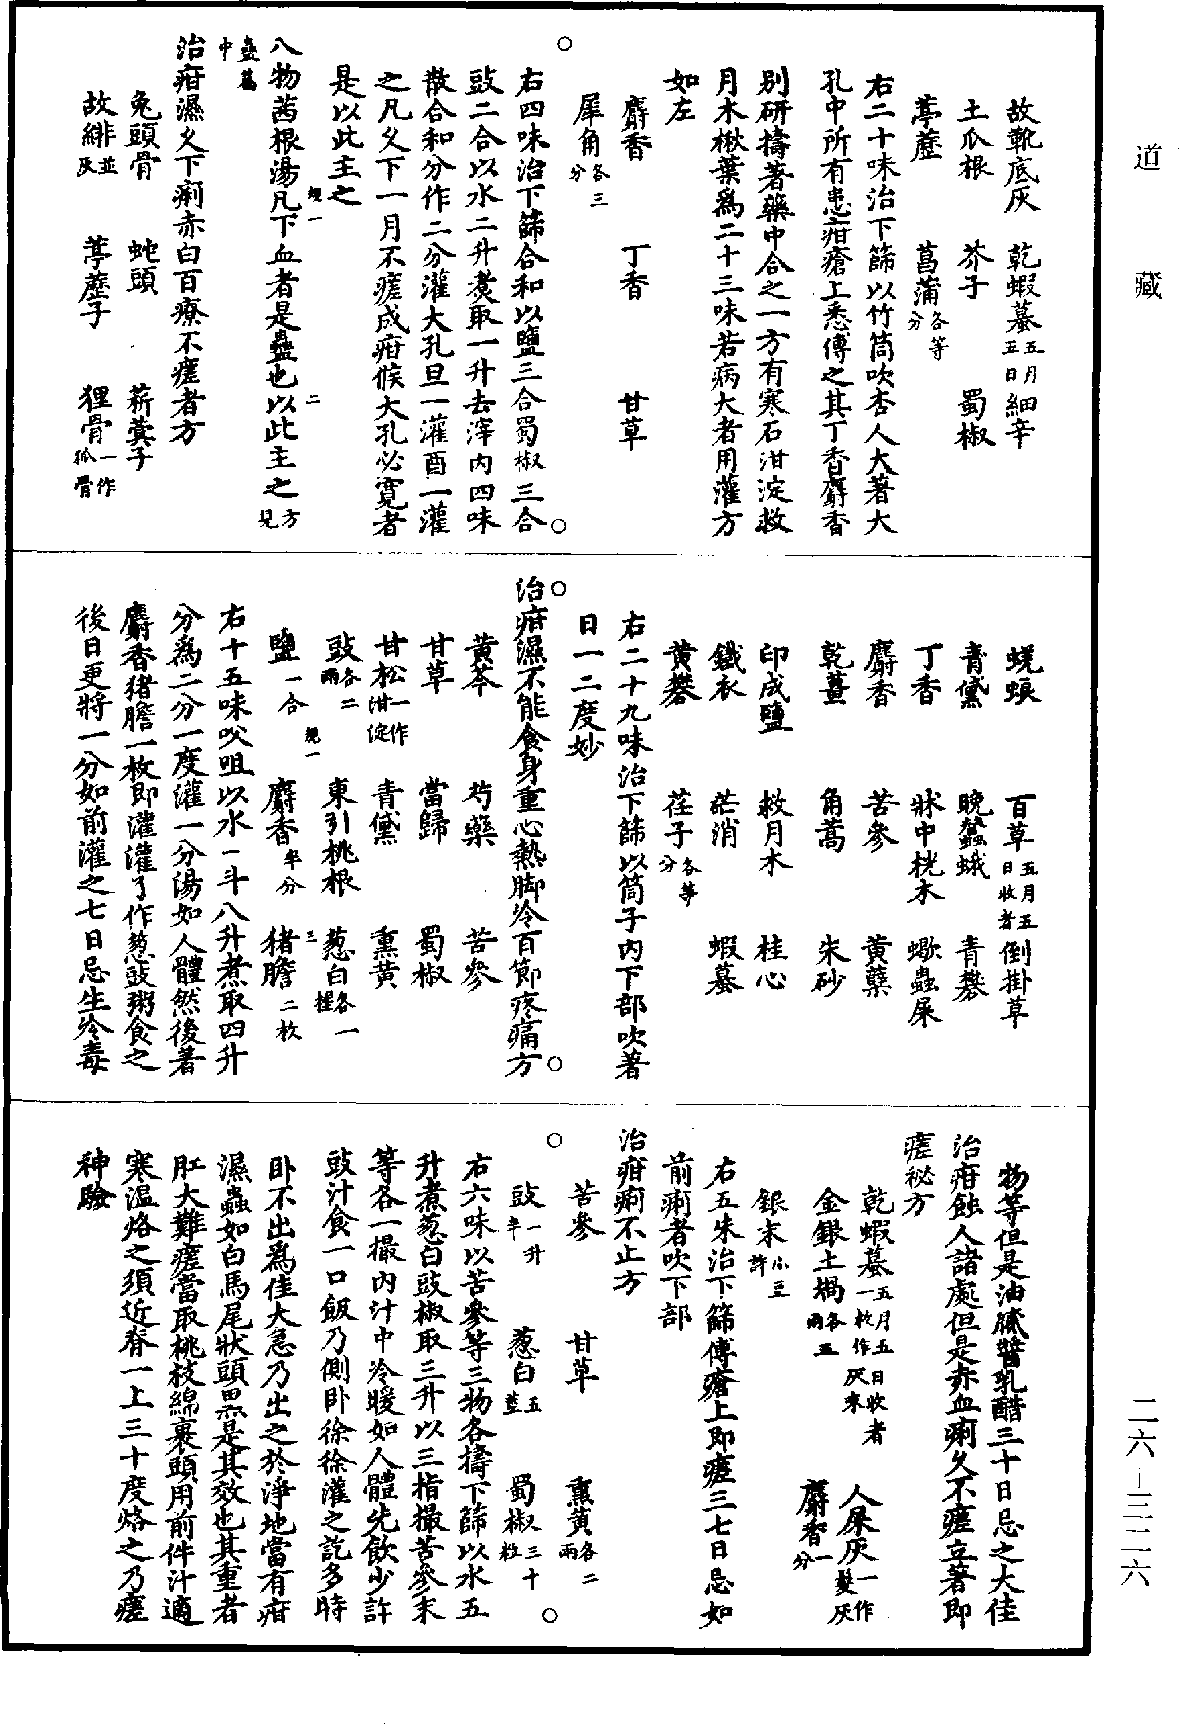 道藏
故靴底灰　乾蝦蟇五月五日　細辛
土瓜根　芥子　蜀椒
葶藶　菖蒲各等分
右二十味治下篩以竹筒吹杏人大著大
孔中所有患疳瘡上悉傅之其丁香麝香
別研擣著藥中合之一方有寒石泔淀救
月木楸葉爲二十三味若病大者用灌方
如左
麝香　丁香　甘草
犀角各三分
右四味治下篩合和以鹽三合蜀椒三合
豉二合以水二升煑取一升去滓内四味
散合和分作二分灌大孔旦一灌酉一灌
之凡久下一月不瘥成疳候大孔必寬者
是以此主之
規一　二
八物茜根湯凡下血者是蠱也以此主之方見
蠱篇中
治疳濕久下痢赤白百療不瘥者方
兔頭骨　蛇頭　菥蓂子
故緋並灰　葶藶子　狸骨一作狐骨
蜣蜋　百草五月五日收者　倒掛草
青黛　晚蠶蛾　青礬
丁香　牀中桄木　蠍蟲屎
麝香　苦參　黄蘗
乾薑　角蒿　朱砂
印成鹽　救月木　桂心
鐵衣　芒消　蝦蟇
黄礬　荏子各等分
右二十九味治下篩以筒子内下部吹著
日一二度妙
治疳濕不能食身重心熱脚冷百節疼痛方
黄芩　芍藥　苦參
甘草　當歸　蜀椒
甘松一作泔淀　青黛　熏黄
豉各二兩　東引桃根　葱白各一握
規一　三
鹽一合　麝香半分　猪膽二枚
右十五味㕮咀以水一斗八升煮取四升
分爲二分一度灌一分湯如人體然後著
麝香猪膽一枚即灌灌了作葱豉粥食之
後日更將一分如前灌之七日忌生冷毒
物等但是油膩醬乳醋三十日忌之大佳
治疳蝕人諸處但是赤血痢久不瘥立著即
瘥秘方
乾蝦蟇一枚五月五日收者作灰末　人屎灰一作髮灰
金銀土堝各五兩　麝香一分
銀末小豆許
右五朱治下篩傅瘡上即瘥三七日忌如
前痢者吹下部
治疳痢不止方
苦參　甘草　熏黄各二兩
豉一升半　葱白五莖　蜀椒三十粒
右六味以苦參等三物各擣下篩以水五
升煮葱白豉椒取三升以三指撮苦參末
等各一撮内汁中冷暖如人體先飲少許
豉汁食一口飯乃側卧徐徐灌之訖多時
卧不出爲佳大急乃出之於淨地當有疳
濕蟲如白馬尾狀頭黑是其效也其重者
肛大難瘥當取桃枝綿裹頭用前件汁適
寒温烙之須近脊一上三十度烙之乃瘥
神驗
二六—三二六